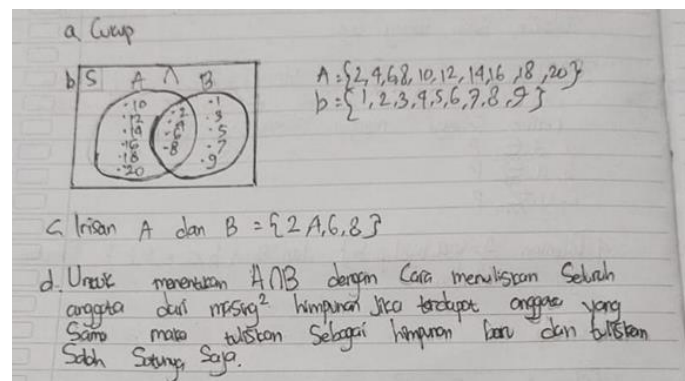 a. Cukup
b. S A ∩ B
A={2,4,6,8,10,12,14,16,18,20}
b={1,2,3,4,5,6,7,8,9}
·10
·12
·14
·16
·18
·20
·2
·4
·6
·8
·1
·3
·5
·7
·9
c. Irisan A dan B = {2,4,6,8}
d. Untuk menentukan A∩B dengan Cara menuliskan Seluruh
anggota dari masing² himpunan Jika terdapat anggota yang
Sama maka tuliskan Sebagai himpunan baru dan tuliskan
Salah Satunya Saja.